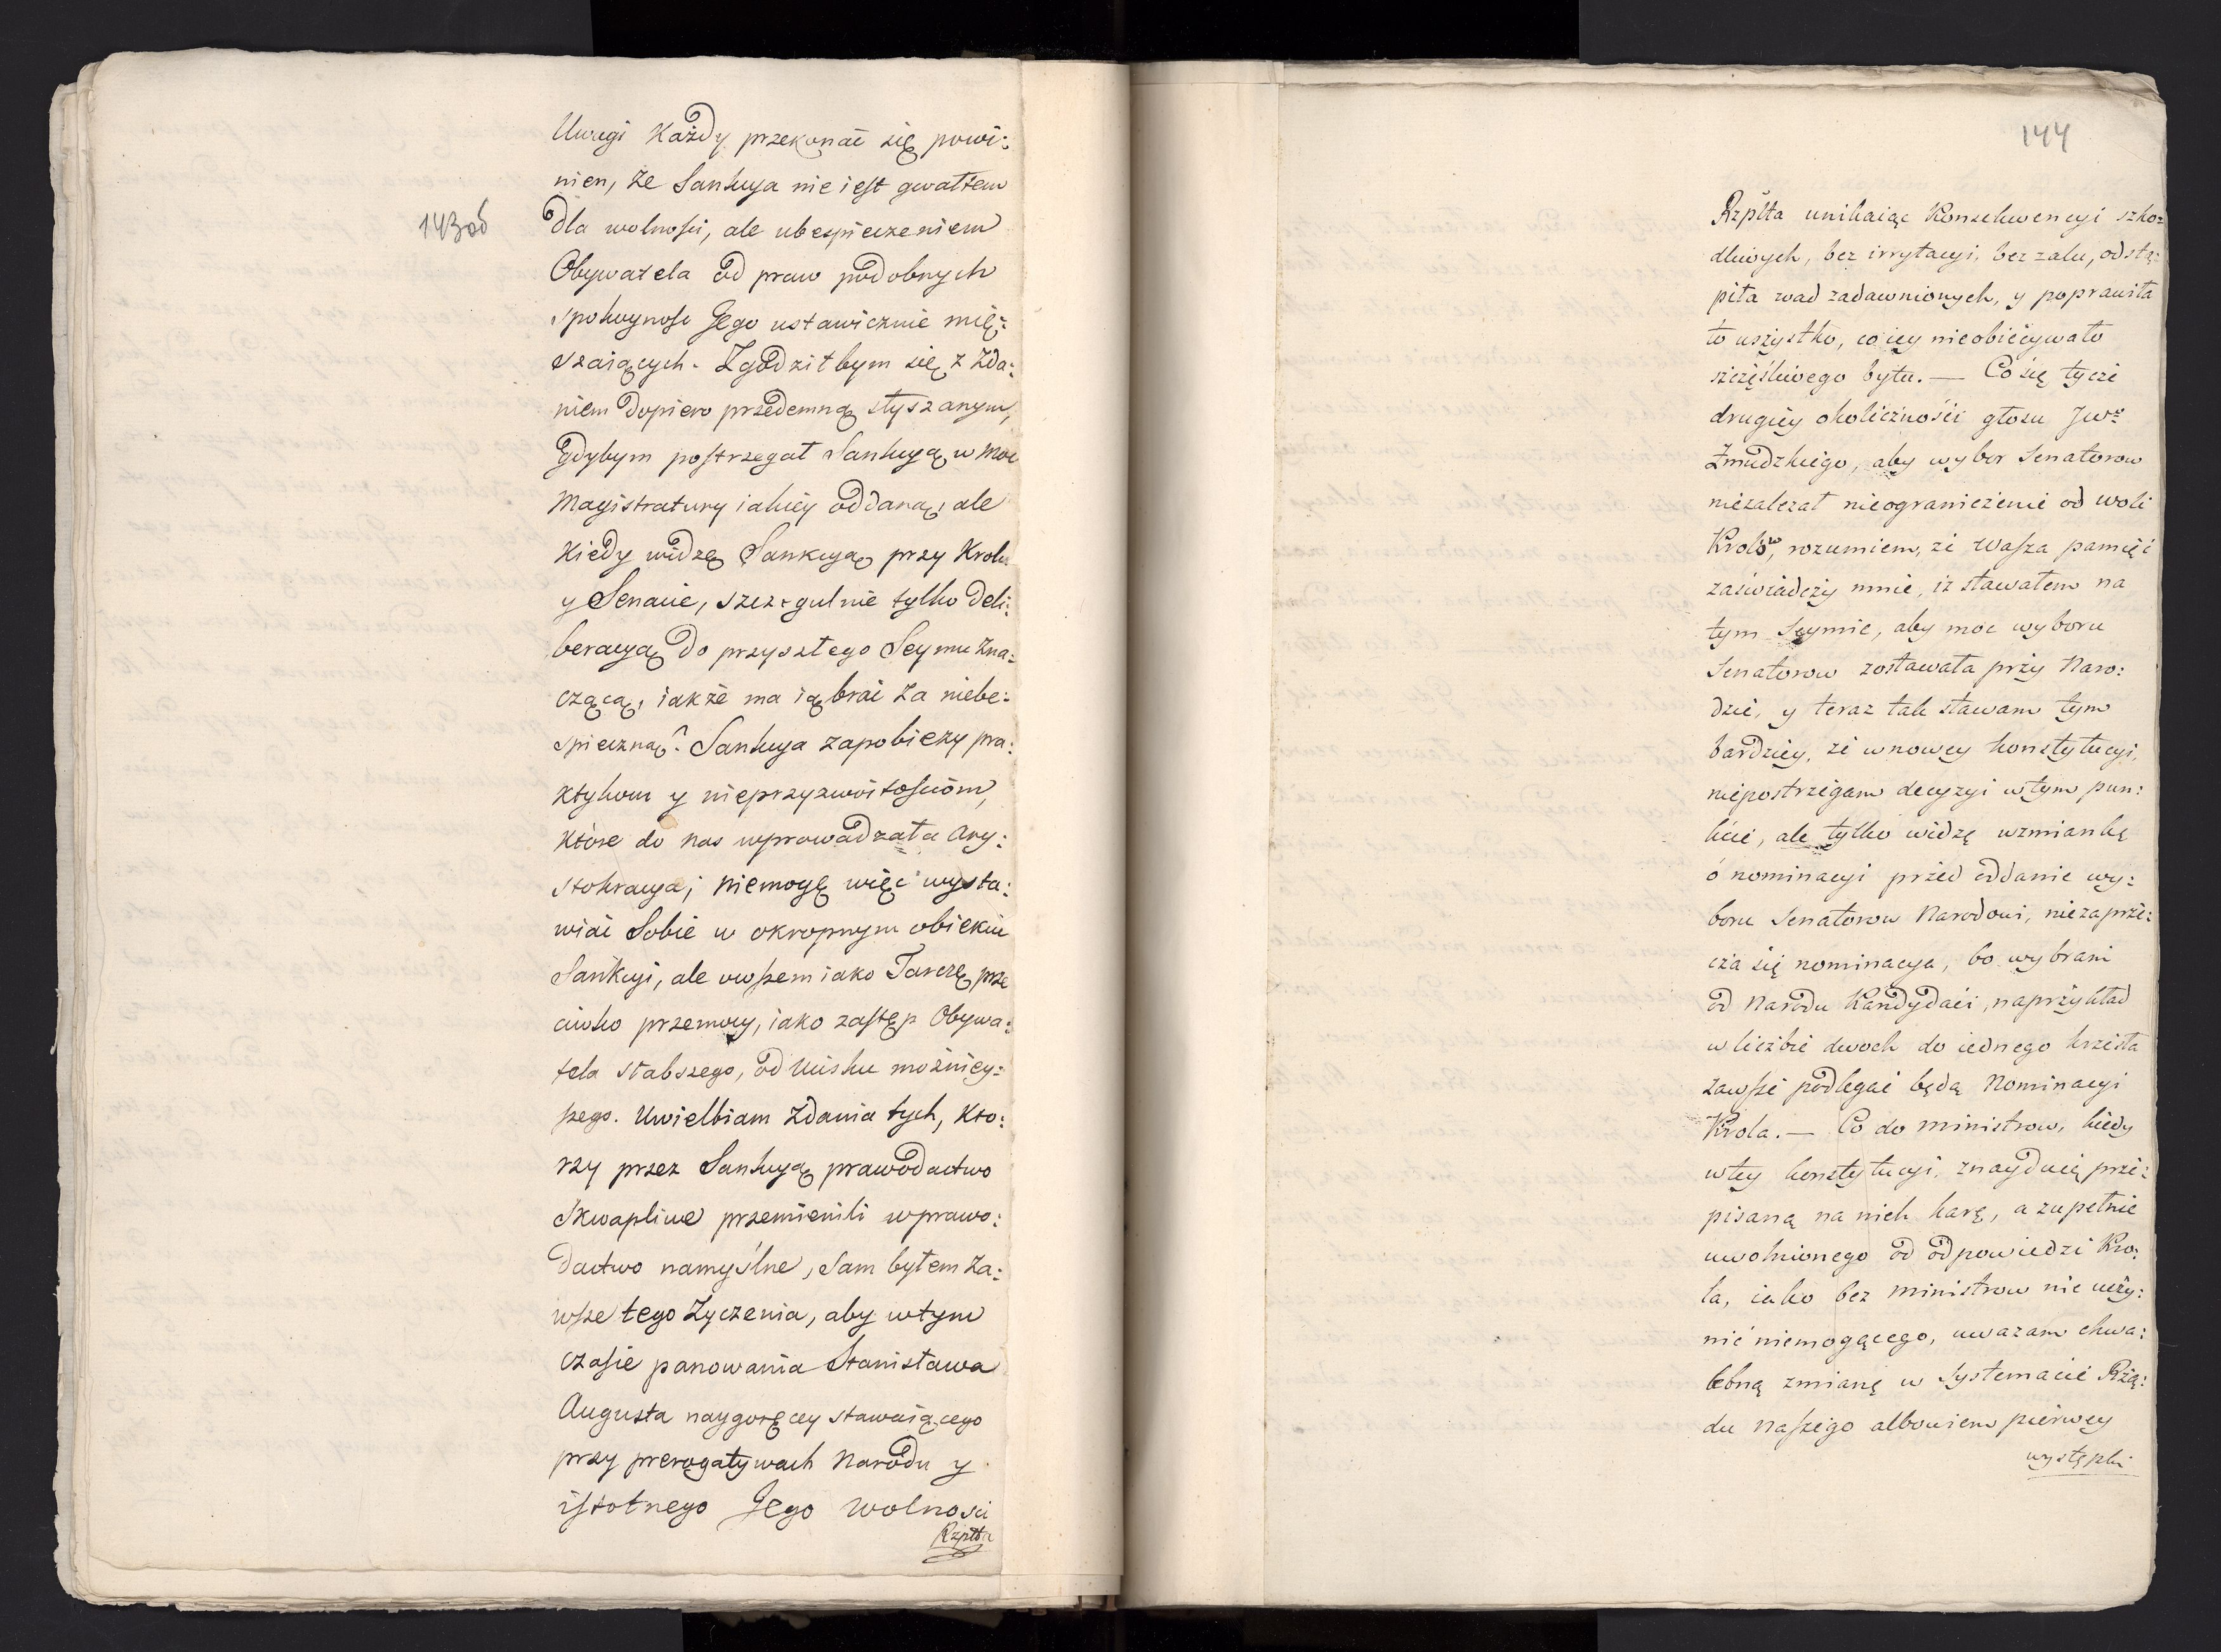 Uwagi Każdy przekonać się powi:
nien, że Sankcya nie iest gwałtem
143 об
dla wolnosci, ale ubespieczeniem
Obywatela od praw podobnych
spokoynosc Jego ustawicznie mię:
szaiących. Zgodził bym się z Zda:
niem dopiero przedemną słyszanym,
gdybym postrzegał Sankcyą w moc
Magistratury iakiey oddaną, ale
Kiedy widzę Sankcyą przy Krolu
y Senacie, szczegulnie tylko deli:
beracyą do przyszłego Seymu zna:
czącą, iakże ma ią brać za niebe:
spieczną? Sankcya zapobieży pra:
ktykom y nieprzyzwoitosciom,
które do nas wprowadzała Ary:
stokracya; niemogę więc wysta:
wiać Sobie w okropnym obiekcie
Sankcyi, ale owszem iako Tarczę prze
ciwko przemocy, iako zastęp Obywa:
tela słabszego, od ucisku możniey:
szego. Uwielbiam Zdania tych, Kto:
rzy przez Sankcyą prawodactwo
Skwapliwe przemienili w prawo:
dactwo namyślne, sam byłem Za:
wsze tego Życzenia, aby w tym
czasie panowania Stanisława
Augusta naygoręcey stawaiącego
przy prerogatywach Narodu y
istotnego Jego wolnosci
Rzplta
144
Rzplta unikaiąc Konsekwencyi szko:
dliwych, bez irrytacyi, bez zalu, odstą:
piła wad zadawnionych, y poprawiła
to wszystko, co iey nieobiecywało
szczęśliwego bytu. — Co się tycze
drugiey okoliczności głosu Jwo
Zmudzkiego, aby wybor Senatorow
niezalezał nieograniczenie od woli
Krolów, rozumiem, ze Wasza pamięć
zaświadczy mnie, iz stawałem na
tym Seymie, aby moc wyboru
Senatorow zostawała przy Naro:
dzie, y teraz tak stawam tym
bardziey, ze w nowey konstytucyi,
niepostrzegam decyzyi w tym pun:
kcie, ale tylko widzę wzmiankę
ó nominacyi przed oddanie wy:
boru Senatorow Narodowi, niezaprze:
cza się nominacya, bo wybrani
od Narodu Kandydaci, naprzykład
w liczbie dwoch do iednego krzesła
zawsze podlegać będą Nominacyi
Krola. — Co do ministrow, kiedy
w tey konstytucyi, znayduię prze:
pisaną na nich karę, a zupełnie
uwolnionego od odpowiedzi Kro:
la, iako bez ministrow nic uczy:
nić niemogącego, uwazam chwa:
lebną zmianę w Systemacie Rzą:
du Naszego albowiem pierwey
występki